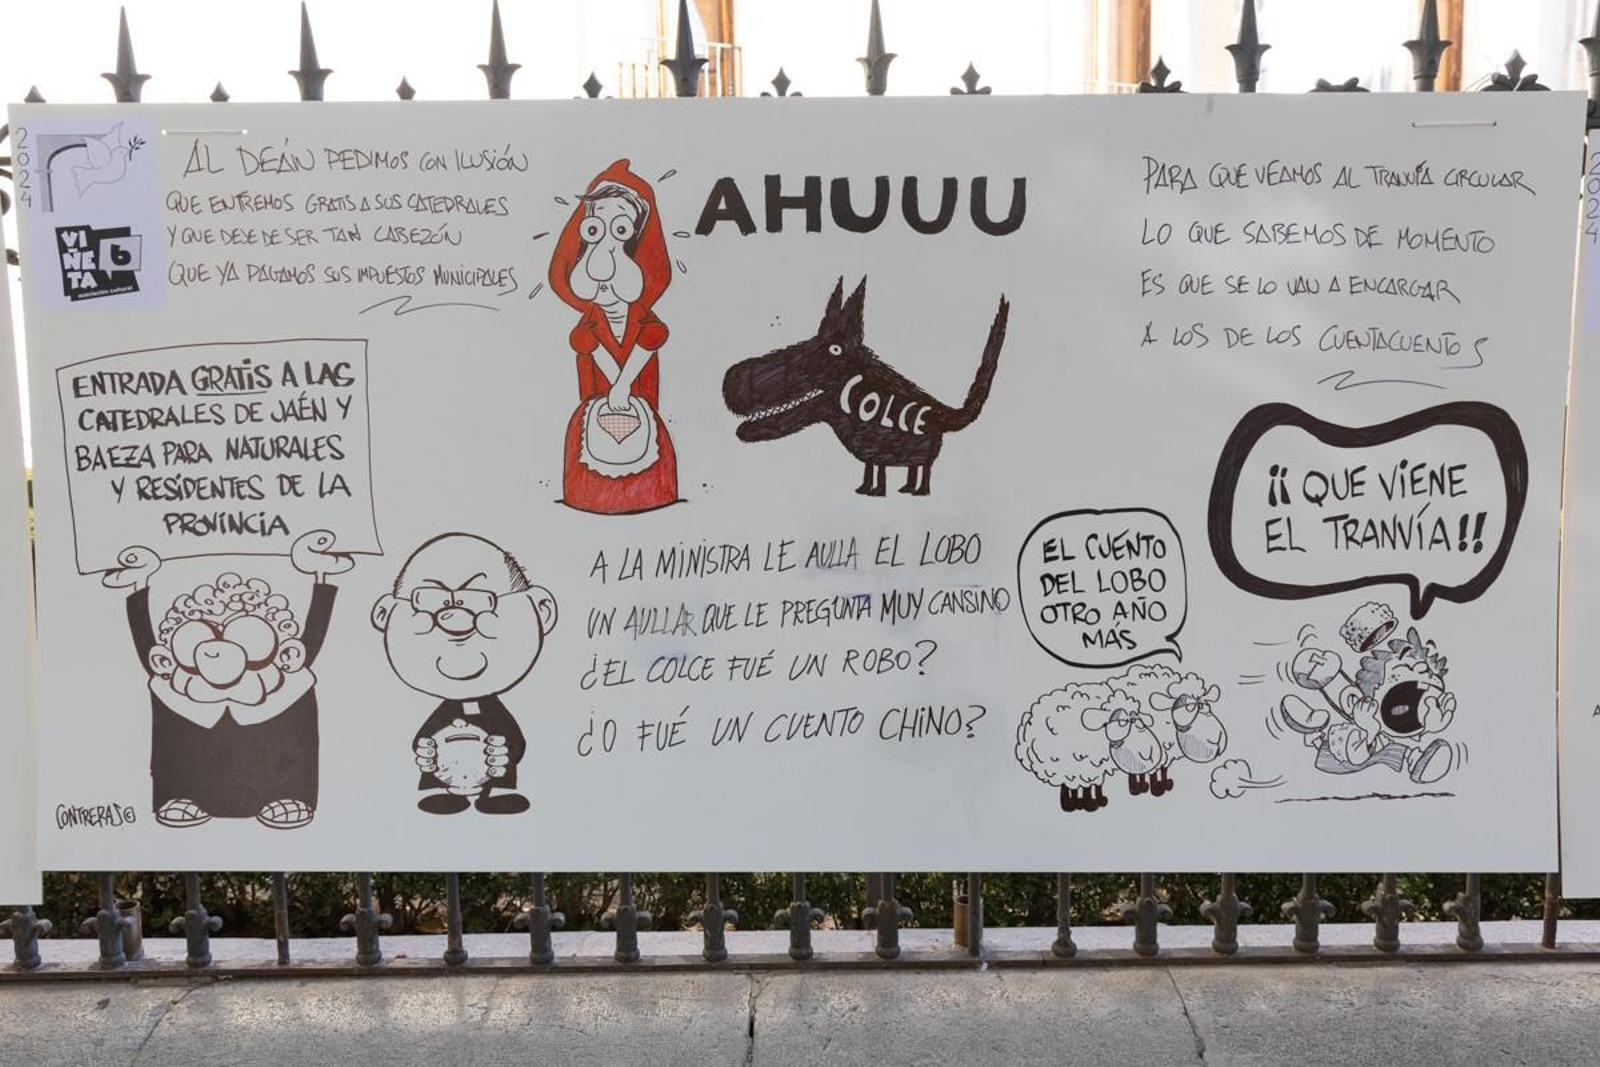 2024
VI
ÑE
TA
6
asociación cultural
AL DEÁN PEDIMOS CON ILUSIÓN
QUE ENTREMOS GRATIS A SUS CATEDRALES
Y QUE DEJE DE SER TAN CABEZÓN
QUE YA PAGAMOS SUS IMPUESTOS MUNICIPALES
ENTRADA GRATIS A LAS
CATEDRALES DE JAÉN Y
BAEZA PARA NATURALES
Y RESIDENTES DE LA
PROVINCIA
CONTRERAS©
AHUUU
COLCE
A LA MINISTRA LE AULLA EL LOBO
UN AULLAR QUE LE PREGUNTA MUY CANSINO
¿EL COLCE FUÉ UN ROBO?
¿O FUÉ UN CUENTO CHINO?
PARA QUE VEAMOS AL TRANVÍA CIRCULAR
LO QUE SABEMOS DE MOMENTO
ES QUE SE LO VAN A ENCARGAR
A LOS DE LOS CUENTACUENTOS
EL CUENTO
DEL LOBO
OTRO AÑO
MÁS
¡¡QUE VIENE
EL TRANVÍA!!